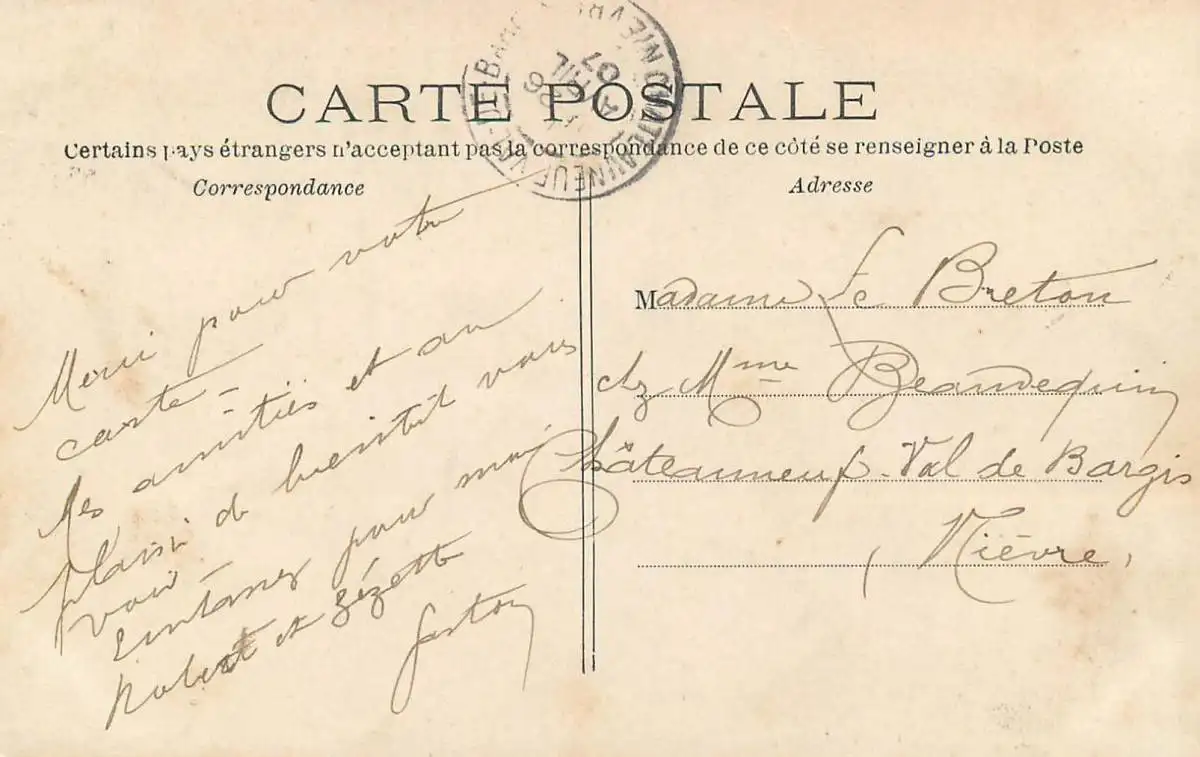 CARTE POSTALE
Certains pays étrangers n'acceptant pas la correspondance de ce côté se renseigner à la Poste
Correspondance
Adresse
CHATEAUNEUF-VAL-DE-BARGIS NIEVRE
26
AVRIL
07
Merci pour votre
carte -
Mes amitiés et au
plaisir de bientôt vous
voir
pour moi
Robert et Zézette
Gaston
Madame Le Breton
chz Mme Beaudequin
Châteauneuf-Val de Bargis
(Nièvre,